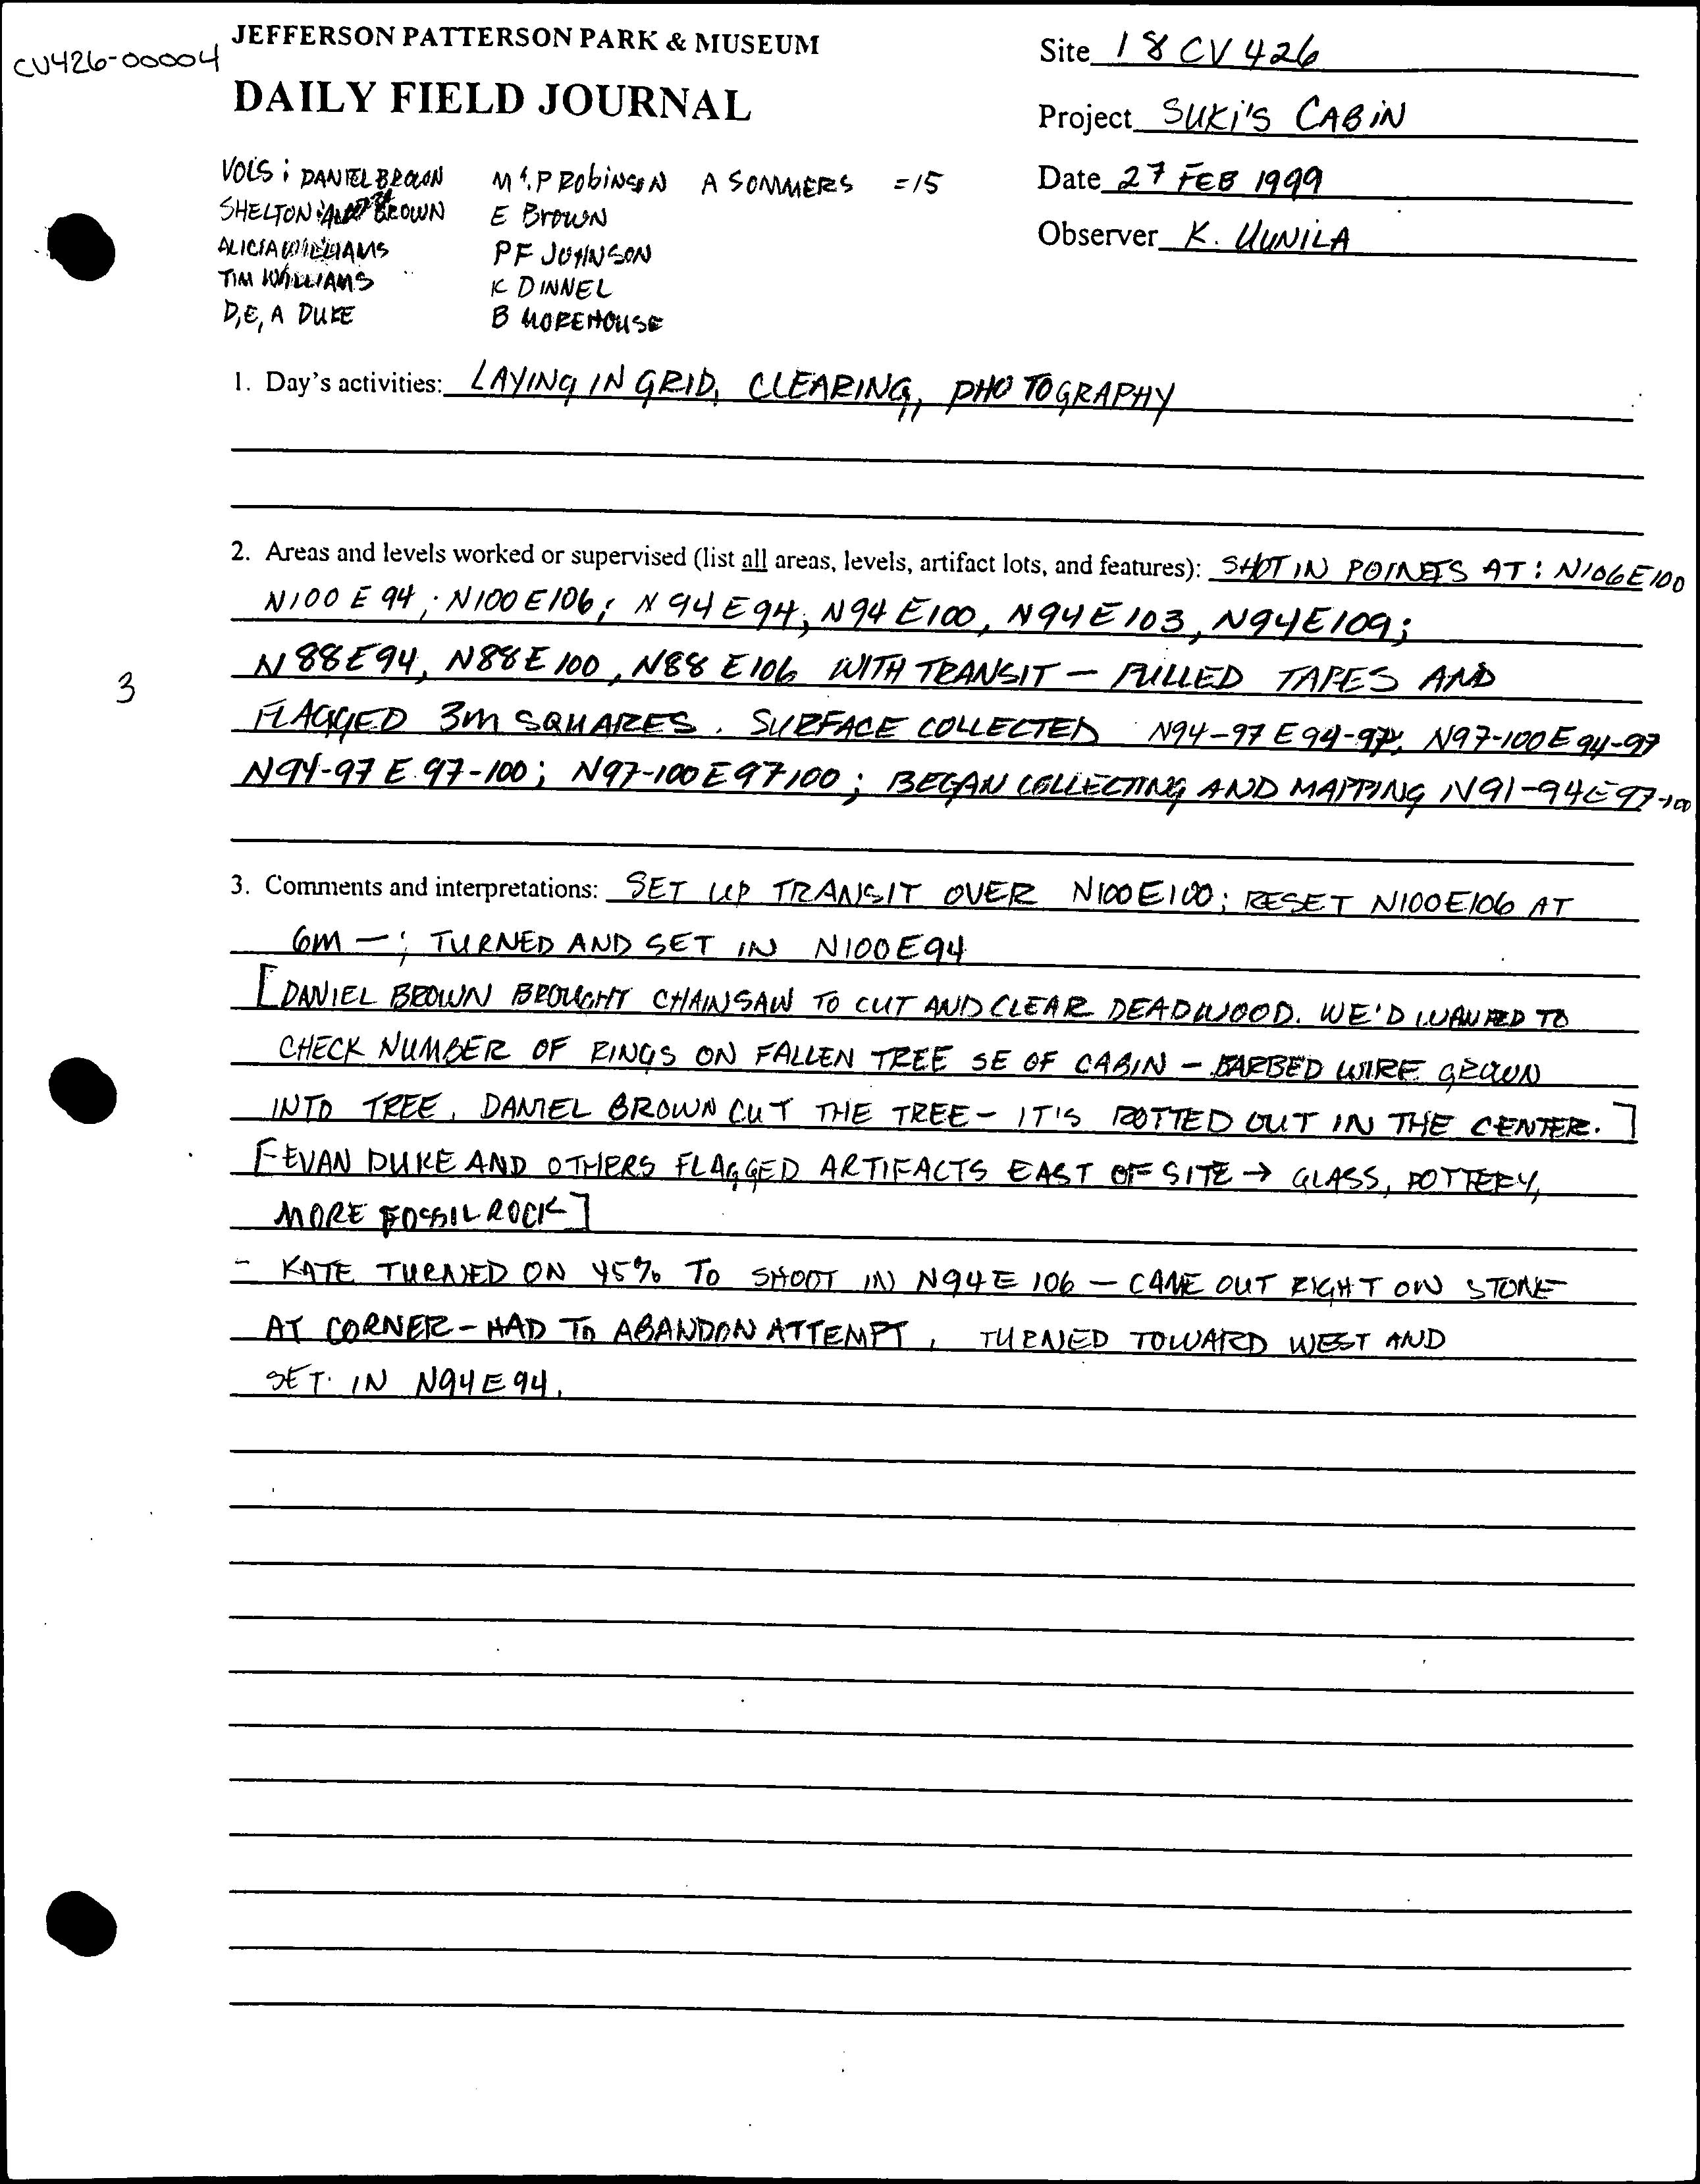 CV426-00004
JEFFERSON PATTERSON PARK & MUSEUM
DAILY FIELD JOURNAL
Site 18 CV 426
Project SUKI'S CABIN
Date 27 FEB 1999
Observer K. UUNILA
VOLS: DANIEL BROWN M & P RObiNSON A SOMMERS =15
SHELTON BROWN E BROWN
ALICIA WILLIAMS PF JOHNSON
TIM WILLIAMS K DINNEL
D, E, A DUKE B MOREHOUSE
1. Day's activities: LAYING IN GRID, CLEARING, PHOTOGRAPHY
2. Areas and levels worked or supervised (list all areas, levels, artifact lots, and features): SHOT IN POINTS AT: N106E100
N100 E 94; N100 E106; N94E94, N94 E100, N94E103, N94E109;
3
N88E94, N88E100, N88 E106 WITH TRANSIT - PULLED TAPES AND
FLAGGED 3M SQUARES. SURFACE COLLECTED N94-97 E94-97, N97-100E94-97
N94-97 E 97-100; N97-100E97100; BEGAN COLLECTING AND MAPPING N91-94E97-100
3. Comments and interpretations: SET UP TRANSIT OVER N100E100; RESET N100E106 AT
6M -; TURNED AND SET IN N100E94
[DANIEL BROWN BROUGHT CHAINSAW TO CUT AND CLEAR DEADWOOD. WE'D WANTED TO
CHECK NUMBER OF RINGS ON FALLEN TREE SE OF CABIN - BARBED WIRE GROWN
INTO TREE. DANIEL BROWN CUT THE TREE - IT'S ROTTED OUT IN THE CENTER.]
[-EVAN DUKE AND OTHERS FLAGGED ARTIFACTS EAST OF SITE → GLASS, POTTERY,
MORE FOSSIL ROCK]
- KATE TURNED ON 45% TO SHOOT IN N94E 106 - CAME OUT RIGHT ON STONE
AT CORNER - HAD TO ABANDON ATTEMPT, TURNED TOWARD WEST AND
SET IN N94E94.